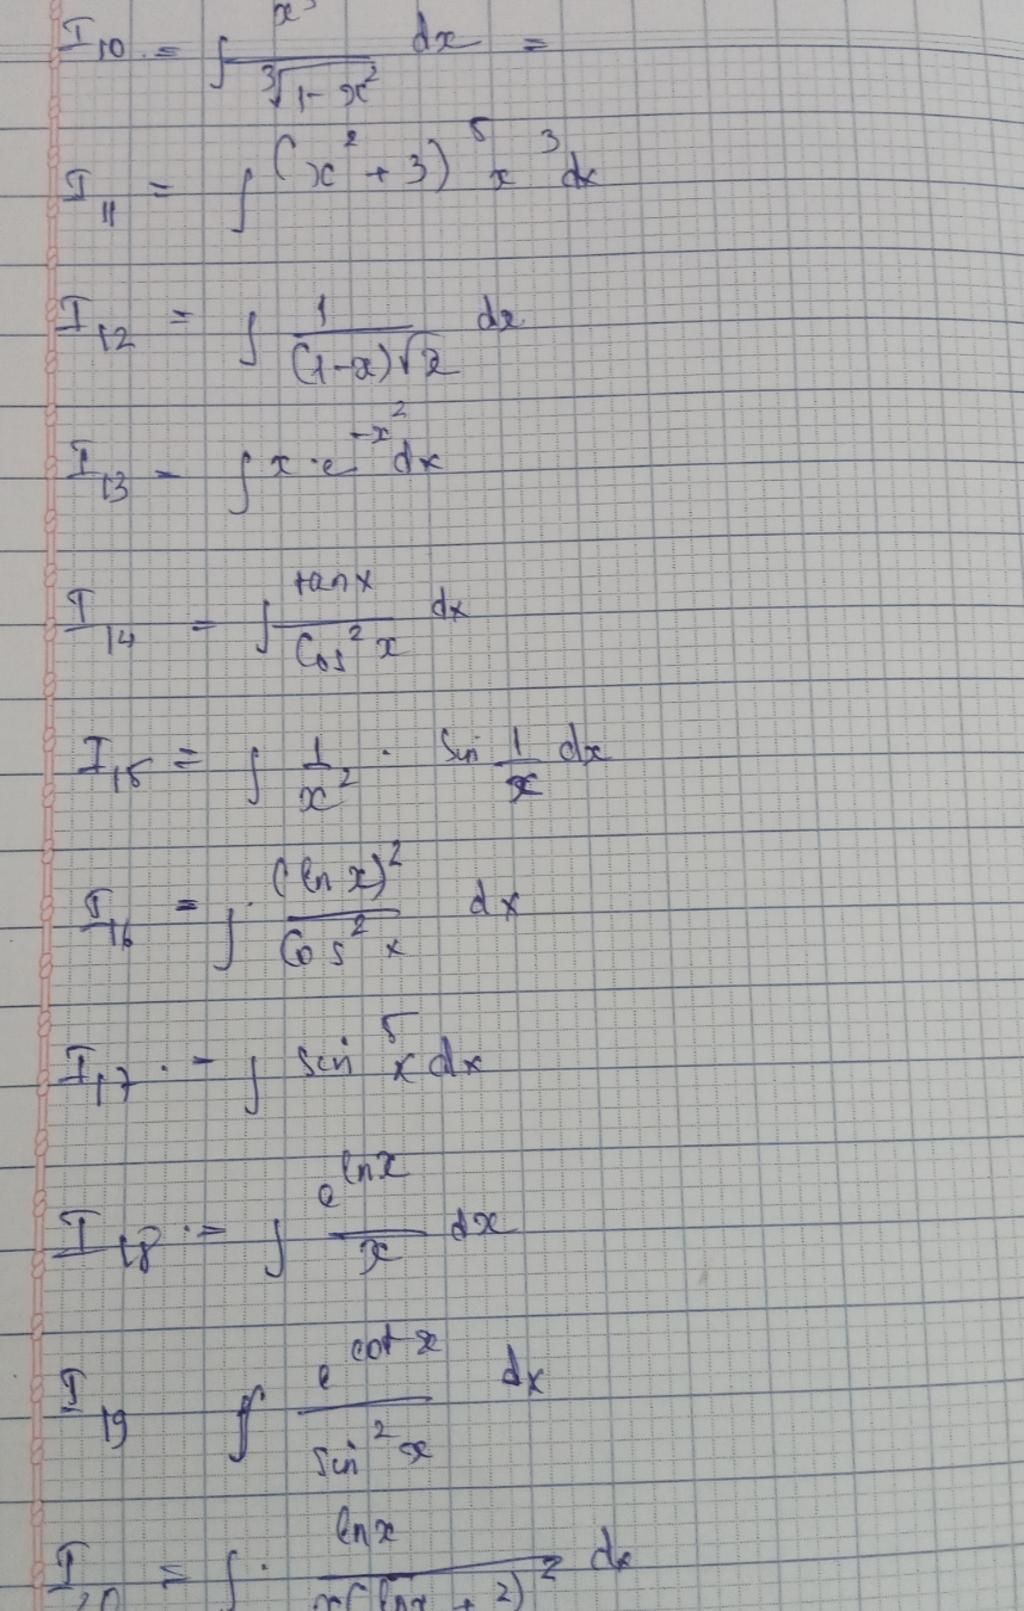 I₁₀ = ∫ x³/∛(1-x²) dx =
I₁₁ = ∫ (x² + 3)⁵ x³ dx
I₁₂ = ∫ 1/((1-x)√x) dx
I₁₃ = ∫ x · e^(-x²) dx
I₁₄ = ∫ tan x/Cos² x dx
I₁₅ = ∫ 1/x² · Sin 1/x dx
I₁₆ = ∫ (ln x)²/Cos² x dx
I₁₇ = ∫ sin⁵ x dx
I₁₈ = ∫ e^(ln x)/x dx
I₁₉ ∫ e^(cot x)/sin² x dx
I₂₀ = ∫ ln x/(x(ln x + 2)²) dx